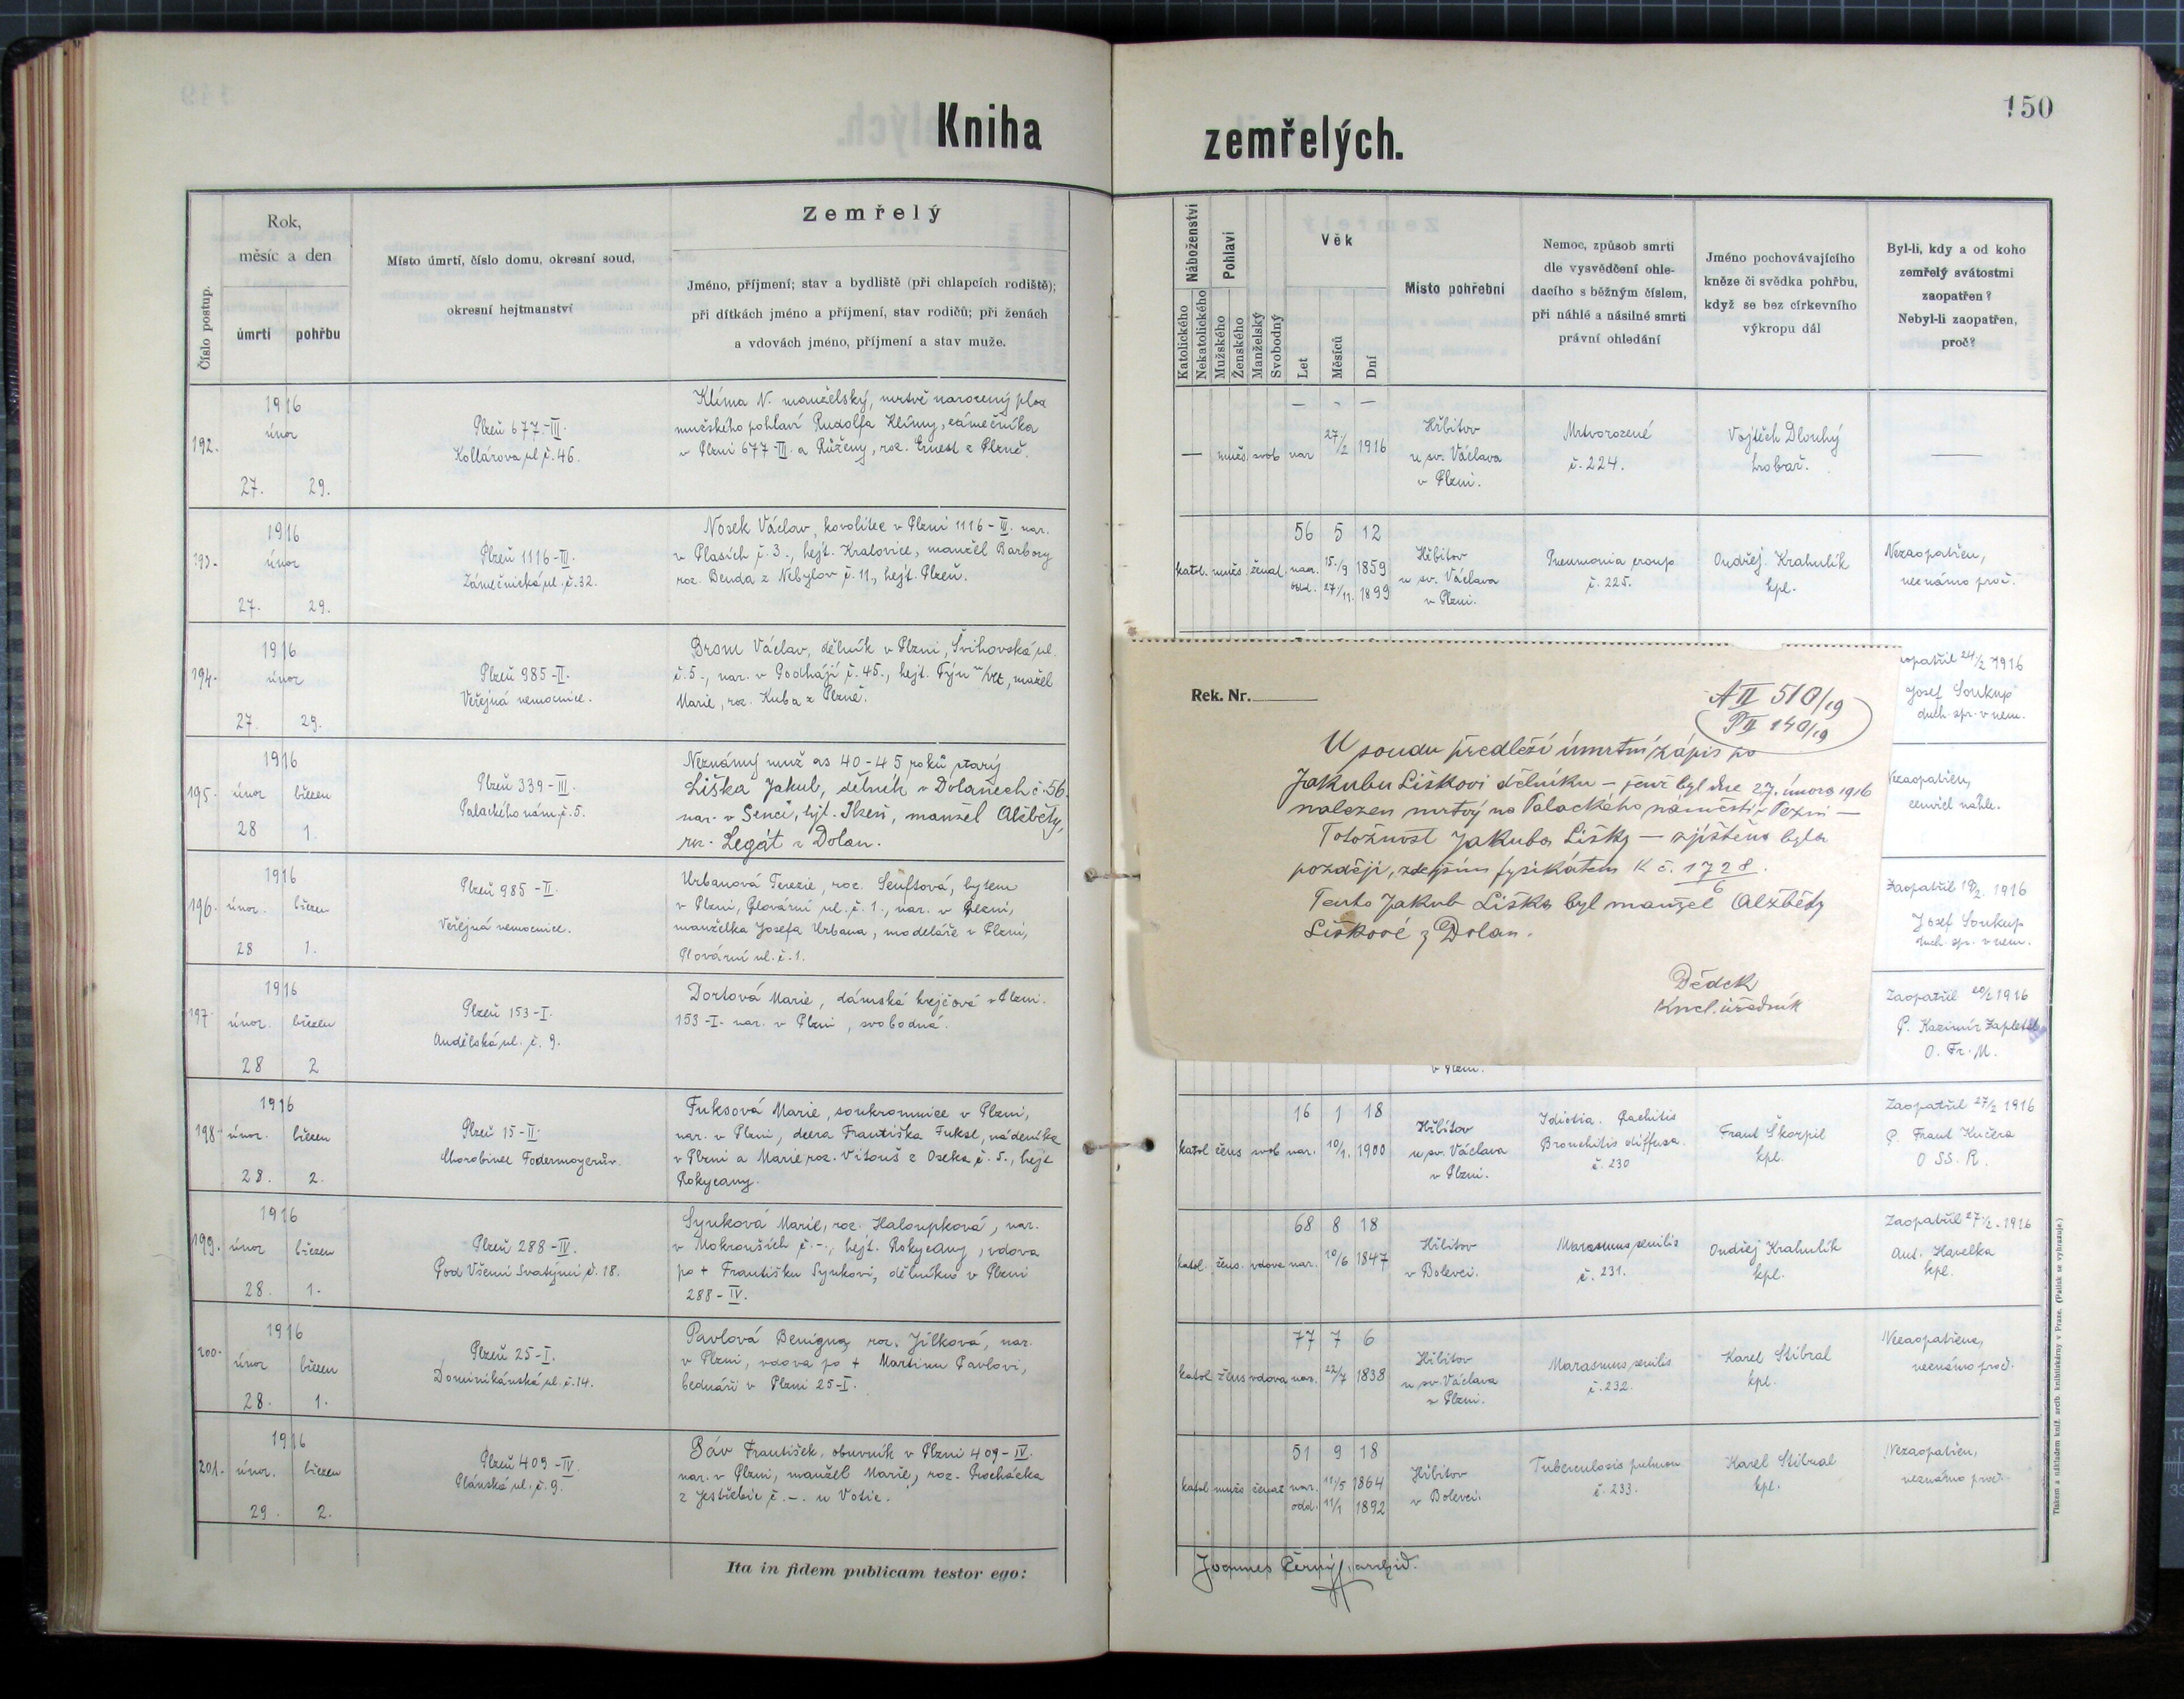 Kniha
zemřelých.
150
Číslo postup.
Rok,
měsíc a den
úmrtí
pohřbu
Místo úmrtí, číslo domu, okresní soud,
okresní hejtmanství
Zemřelý
Jméno, příjmení; stav a bydliště (při chlapcích rodiště);
při dítkách jméno a příjmení, stav rodičů; při ženách
a vdovách jméno, příjmení a stav muže.
192.
1916
únor
27.
29.
Plzeň 677.-III.
Kollárova ul. č. 46.
Klíma N. manželský, mrtvě narozený plod
mužského pohlaví Rudolfa Klímy, zámečníka
v Plzni 677-III. a Růženy, roz. Ernest z Plzně.
193.
1916
únor
27.
29.
Plzeň 1116-III.
Zámečnická ul. č. 32.
Nosek Václav, kovolitec v Plzni 1116-III. nar.
v Plasích č. 3., hejt. Kralovice, manžel Barbory
roz. Benda z Nebylov č. 11., hejt. Plzeň.
194.
1916
únor
27
29.
Plzeň 985-II.
Veřejná nemocnice.
Brom Václav, dělník v Plzni, Švihovská ul.
č. 5., nar. v Podhájí č. 45., hejt. Týn n/Vlt, manžel
Marie, roz. Kuba z Plzně.
195.
1916
únor
březen
28
1.
Plzeň 339-III.
Palackého nám. č. 5.
Neznámý muž as 40-45 roků starý
Liška Jakub, dělník v Dolanech č. 56.
nar. v Senci, hjt. Plzeň, manžel Alžběty,
roz. Legát z Dolan.
196.
1916
únor.
březen
28
1.
Plzeň 985-II.
Veřejná nemocnice.
Urbanová Terezie, roz. Senftová, bytem
v Plzni, Plovární ul. č. 1., nar. v Plzni,
manželka Josefa Urbana, modeláře v Plzni,
Plovární ul. č. 1.
197.
1916
únor.
březen
28
2
Plzeň 153-I.
Andělská ul. č. 9.
Dortová Marie, dámská krejčová v Plzni.
153-I. nar. v Plzni, svobodná.
198.
1916
únor.
březen
28.
2.
Plzeň 15-II.
Chorobinec Fodermayerův.
Fuksová Marie, soukromnice v Plzni,
nar. v Plzni, dcera Františka Fuksl, nádeníka
v Plzni a Marie roz. Vitouš z Oseka č. 5., hejt
Rokycany.
199.
1916
únor
březen
28.
1.
Plzeň 288-IV.
Pod Všemi Svatými č. 18.
Synková Marie, roz. Haloupková, nar.
v Mokrouších č. -., hejt. Rokycany, vdova
po + Františku Synkovi, dělníku v Plzni
288-IV.
200.
1916
únor
březen
28.
1.
Plzeň 25-I.
Dominikánská ul. č. 14.
Pavlová Benigna, roz. Jílková, nar.
v Plzni, vdova po + Martinu Pavlovi,
bednáři v Plzni 25-I.
201.
1916
únor.
březen
29.
2.
Plzeň 409-IV.
Plánská ul. č. 9.
Páv František, obuvník v Plzni 409-IV.
nar. v Plzni, manžel Marie, roz. Procházka
z Jestřebic č. -. u Votic.
Ita in fidem publicam testor ego:
Náboženství
Katolického
Nekatolického
Pohlaví
Mužského
Ženského
Manželský
Svobodný
Věk
Let
Měsíců
Dní
Místo pohřební
Nemoc, způsob smrti
dle vysvědčení ohle-
dacího s běžným číslem,
při náhlé a násilné smrti
právní ohledání
Jméno pochovávajícího
kněze či svědka pohřbu,
když se bez církevního
výkropu dál
Byl-li, kdy a od koho
zemřelý svátostmi
zaopatřen?
Nebyl-li zaopatřen,
proč?
— - —
— mužs. svob nar 27/2 1916
Hřbitov
u sv. Václava
v Plzni.
Mrtvorozené
č. 224.
Vojtěch Dlouhý
hrobař.
—
56 5 12
katol. mužs. ženat. nar. 15./9 1859
odd. 27/11. 1899
Hřbitov
u sv. Václava
v Plzni.
Pneumonia croup.
č. 225.
Ondřej Krahulík
kpl.
Nezaopatřen,
neznámo proč.
24/2 1916
Josef Soukup
duch. spr. v nem.
Nezaopatřen,
zemřel náhle.
Zaopatřil 19/2. 1916
Josef Soukup
duch. spr. v nem.
Zaopatřil 20/2 1916
P. Kazimír Zapletal
O. Fr. M.
Rek. Nr.
A II 510/19
P II 140/19
U soudu předleží úmrtní zápis po
Jakubu Liškovi dělníku — jenž byl dne 27. února 1916
nalezen mrtvý na Palackého náměstí v Plzni —
Totožnost Jakuba Lišky — zjištěna byla
později, zdejším fysikátem K č. 1728/6.
Tento Jakub Liška byl manžel Alžběty
Liškové z Dolan.
Dědek
kncl. úředník
v Plzni.
16 1 18
katol žens svob nar. 10/1. 1900
Hřbitov
u sv. Václava
v Plzni.
Idiotia. Rachitis
Bronchitis diffusa.
č. 230
Frant Škorpil
kpl.
Zaopatřil 27/2 1916
P. Frant Kučera
O SS. R.
68 8 18
katol. žens. vdova nar. 10/6 1847
Hřbitov
v Bolevci.
Marasmus senilis
č. 231.
Ondřej Krahulík
kpl.
Zaopatřil 27/2. 1916
Ant. Havelka
kpl.
77 7 6
katol žens vdova nar. 22/7 1838
Hřbitov
u sv. Václava
v Plzni.
Marasmus senilis.
č. 232.
Karel Stibral
kpl.
Nezaopatřena,
neznámo proč.
51 9 18
katol mužs ženat nar. 11/5 1864
odd. 11/1 1892
Hřbitov
v Bolevci.
Tuberculosis pulmon
č. 233.
Karel Stibral
kpl.
Nezaopatřen,
neznámo proč.
Joannes Černý, archid.
Tiskem a nákladem kníž. arcib. knihtiskárny v Praze. (Patisk se vyhrazuje.)